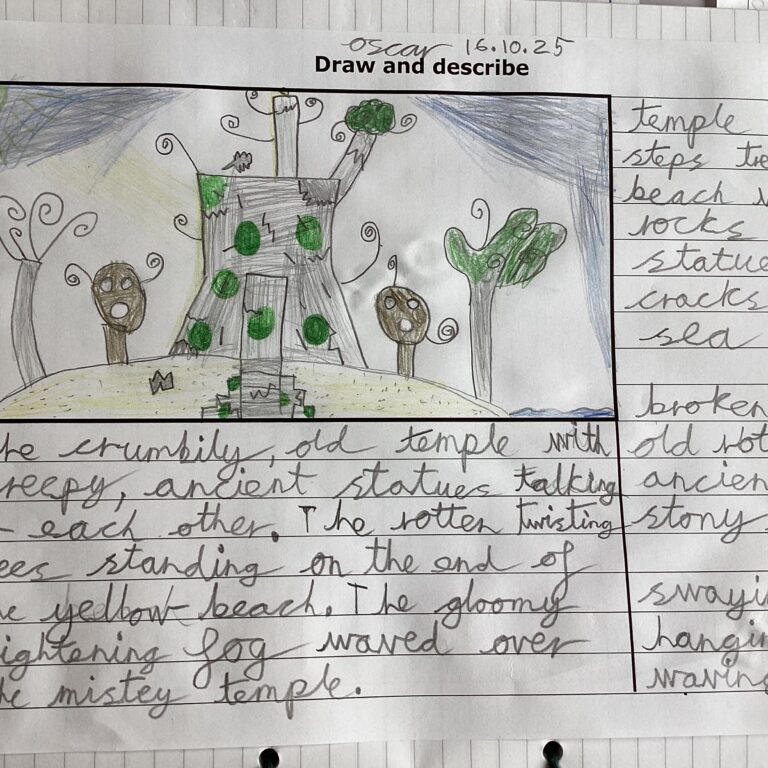 oscar 16.10.25
Draw and describe
temple
steps tre
beach
rocks
statue
cracks
sea
broken
old rot
ancien
stony
swayi
hangin
waving
he crumbily, old temple with
reepy, ancient statues talking
each other. The rotten twisting
ees standing on the end of
he yellow beach. The gloomy
ightening fog waved over
he mistey temple.